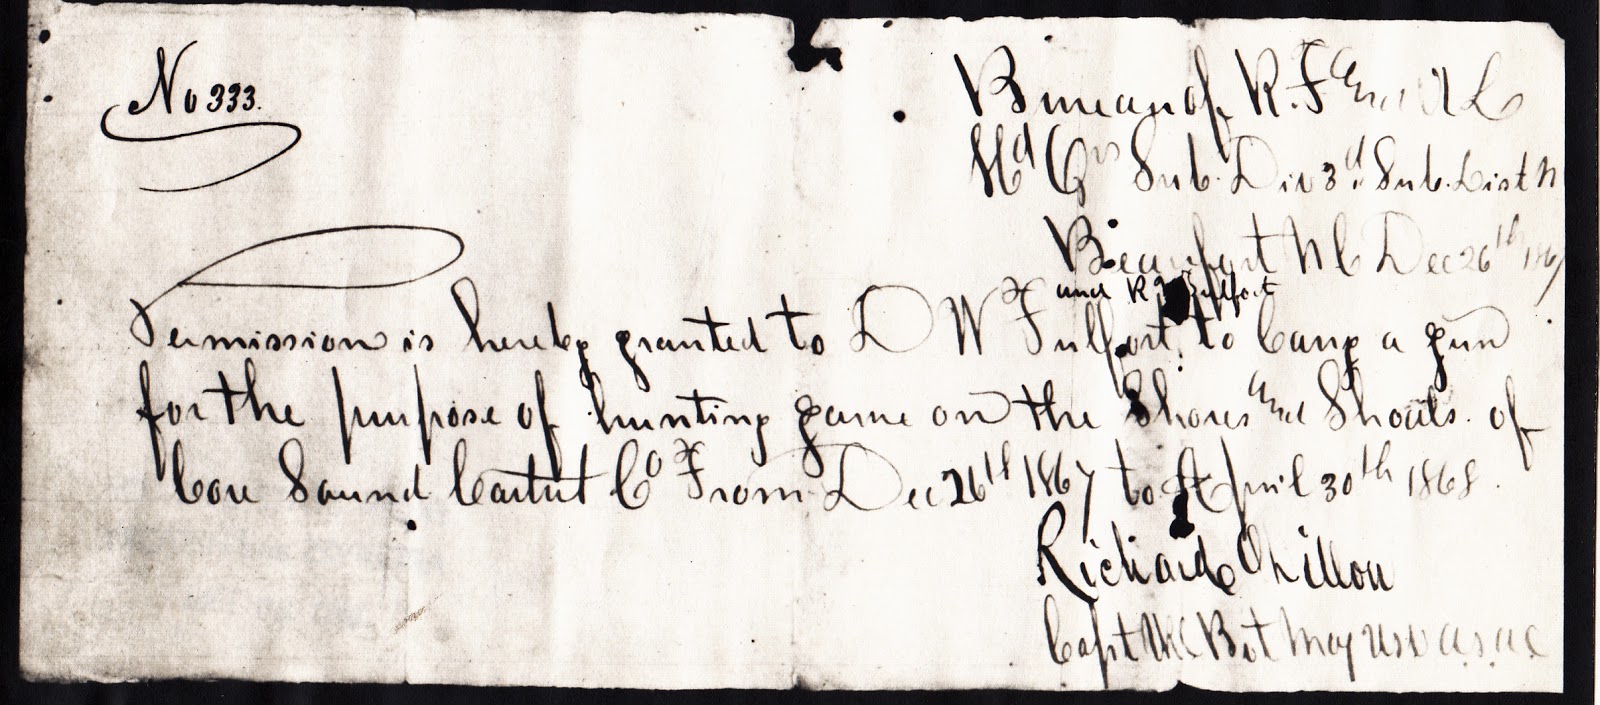 No 333.
Bureau of R. F. and A L
Hd Qrs Sub. Div 3d. Sub. Dist N
Beaufort N C Dec 26th 1867
and R Fulfort
Permission is hereby granted to D W Fulfort, to carry a gun
for the purpose of hunting game on the Shores and Shoals. of
Core Sound Cartret Co From Dec 26th 1867 to April 30th 1868.
Richard Dillon
Capt VRC Bvt Maj USV